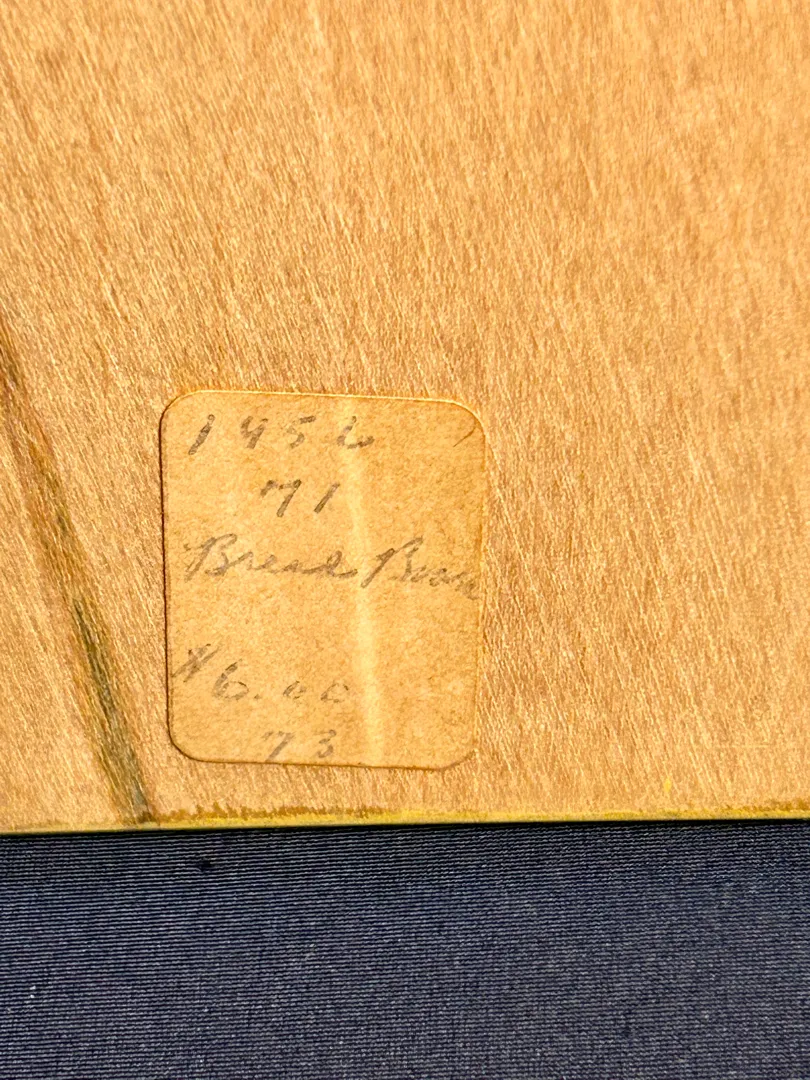 1952
71
Bread Boar
$6.00
73